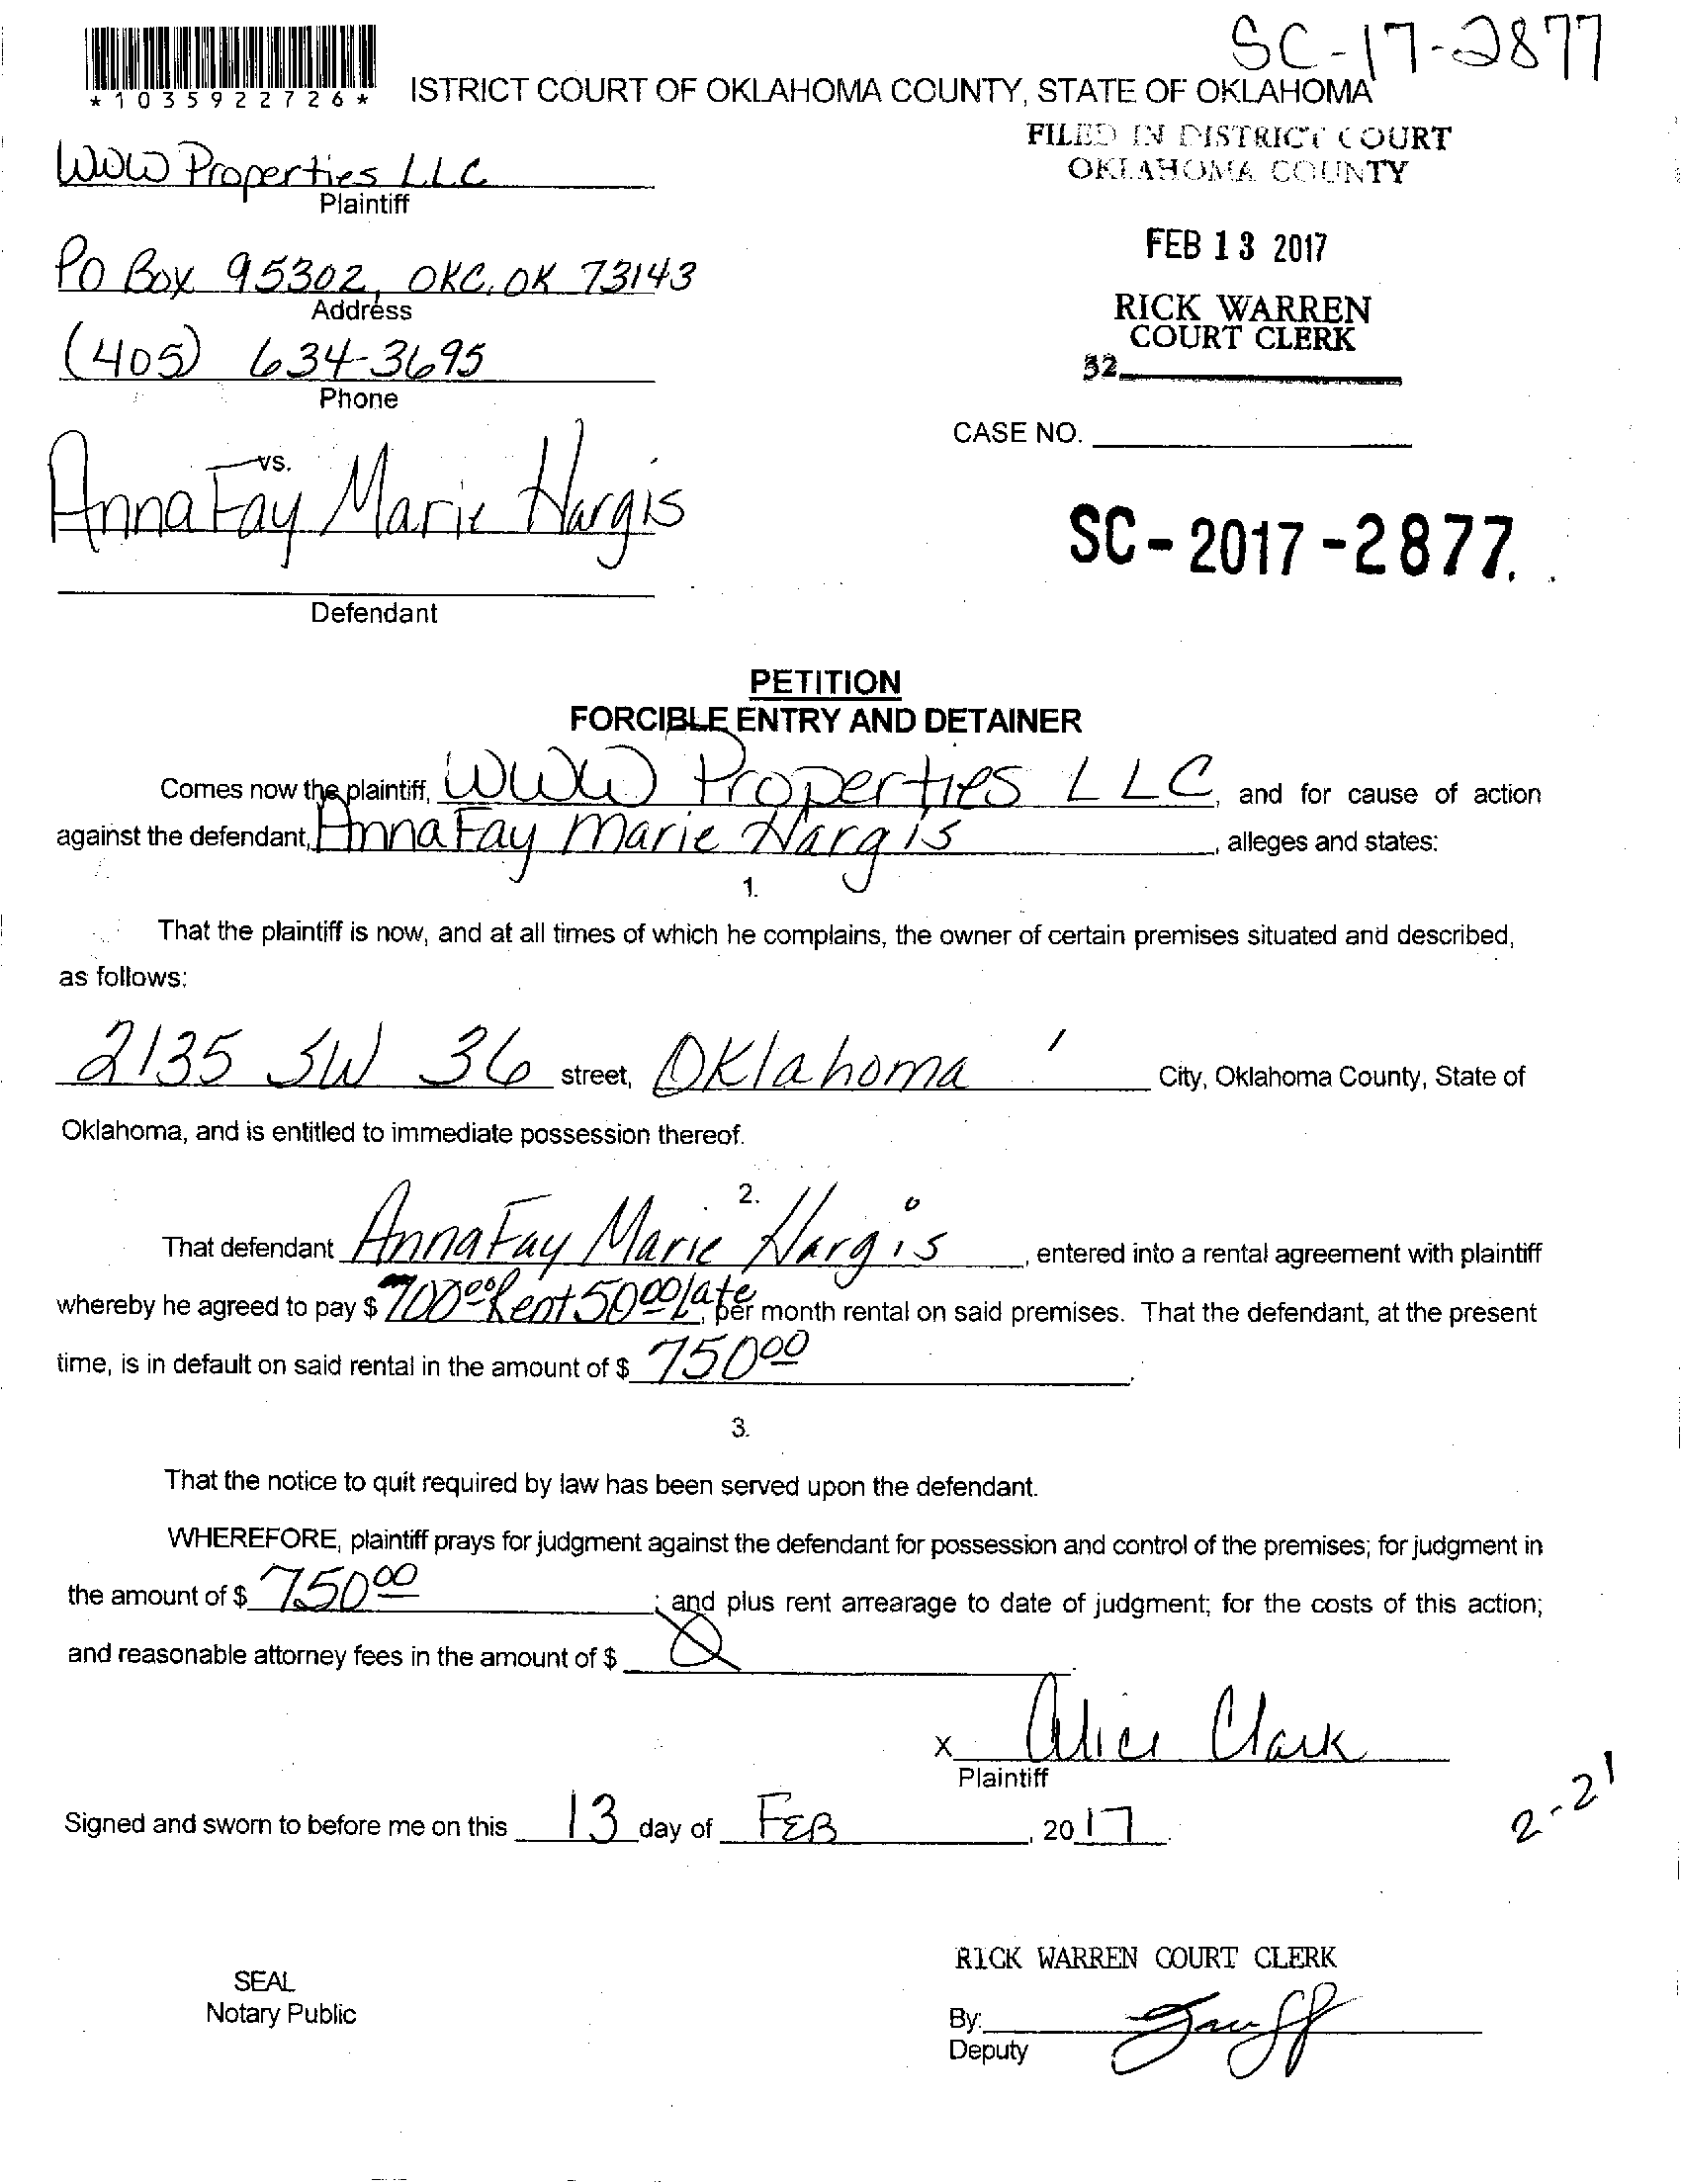 SC-17-2877
*1035922726*
ISTRICT COURT OF OKLAHOMA COUNTY, STATE OF OKLAHOMA
FILED IN DISTRICT COURT
OKLAHOMA COUNTY
WWW Properties LLC
Plaintiff
FEB 13 2017
PO Box 95302, OKC, OK 73143
Address
RICK WARREN
COURT CLERK
32
(405) 634-3695
Phone
CASE NO.
vs.
Anna Fay Marie Hargis
SC-2017-2877.
Defendant
PETITION
FORCIBLE ENTRY AND DETAINER
Comes now the plaintiff, WWW Properties LLC, and for cause of action
against the defendant, Anna Fay Marie Hargis, alleges and states:
1.
That the plaintiff is now, and at all times of which he complains, the owner of certain premises situated and described,
as follows:
2135 SW 36 street, Oklahoma City, Oklahoma County, State of
Oklahoma, and is entitled to immediate possession thereof.
2.
That defendant Anna Fay Marie Hargis, entered into a rental agreement with plaintiff
whereby he agreed to pay $ 700 00 Rent 50 00 late, per month rental on said premises. That the defendant, at the present
time, is in default on said rental in the amount of $ 750 00.
3.
That the notice to quit required by law has been served upon the defendant.
WHEREFORE, plaintiff prays for judgment against the defendant for possession and control of the premises; for judgment in
the amount of $ 750 00; and plus rent arrearage to date of judgment; for the costs of this action;
and reasonable attorney fees in the amount of $ 0.
X Alice Clark
Plaintiff
2-21
Signed and sworn to before me on this 13 day of FEB, 2017.
RICK WARREN COURT CLERK
SEAL
Notary Public
By:
Deputy